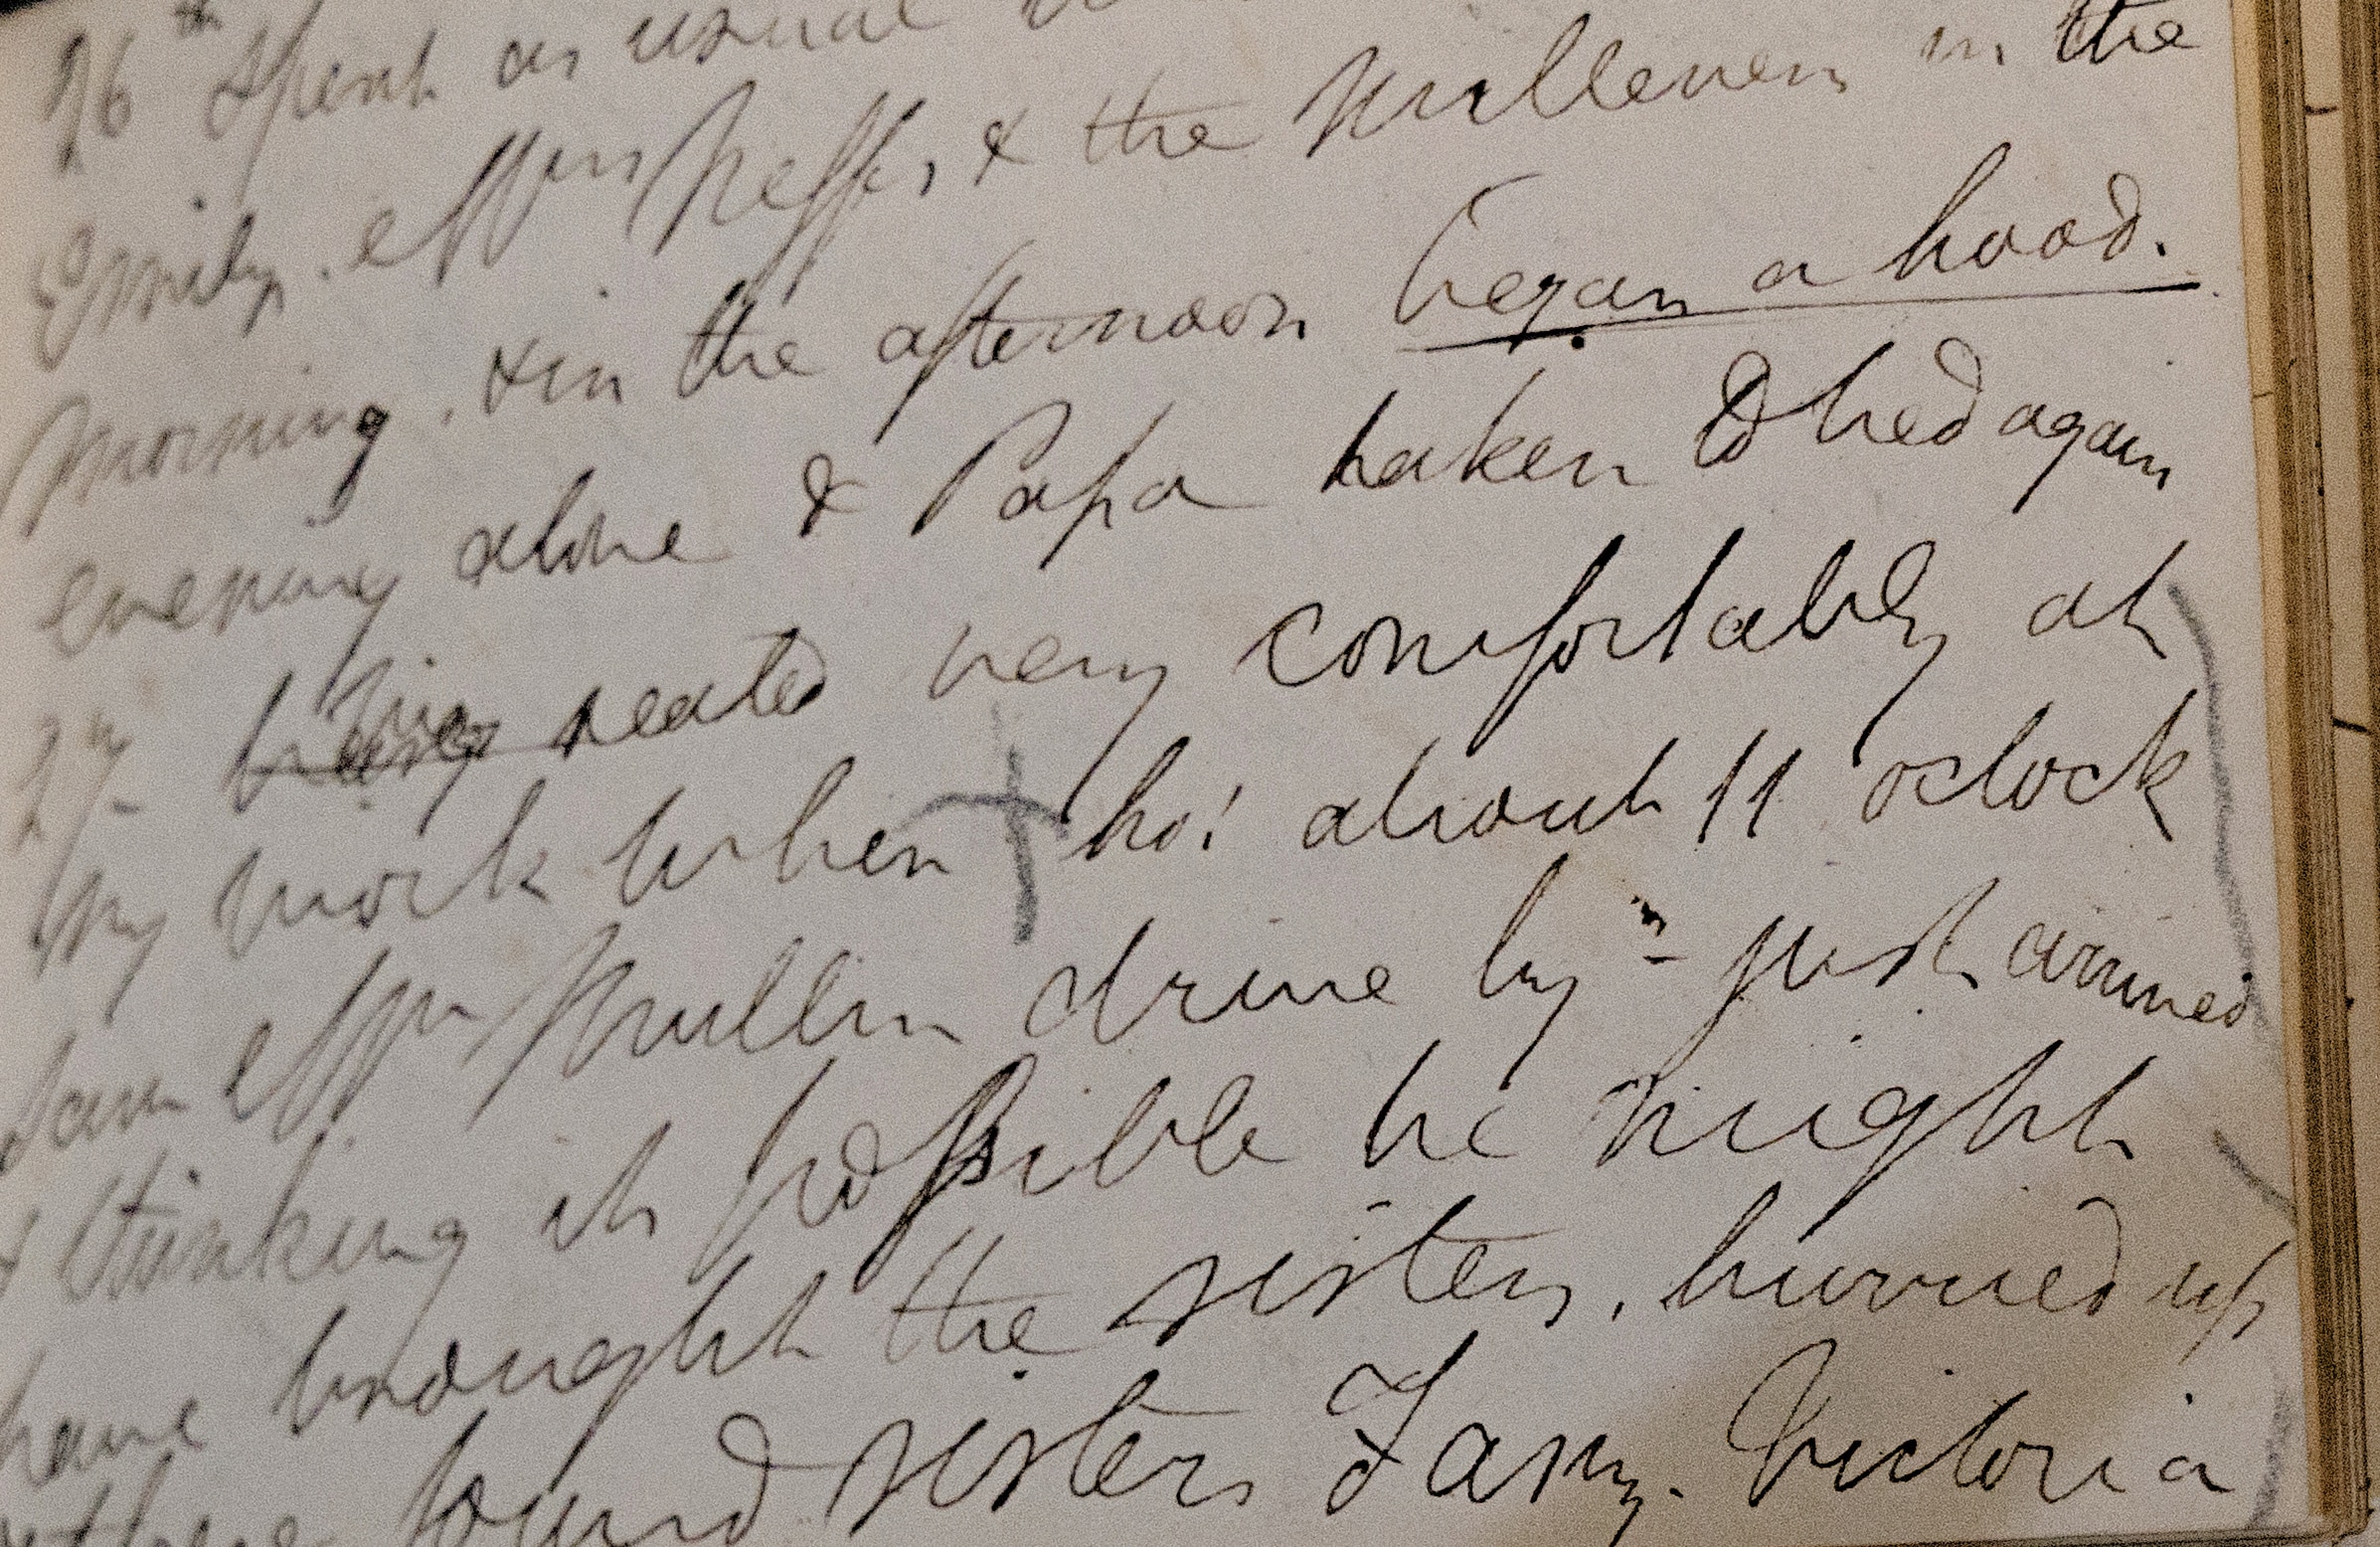 26th Spent as usual
Emily. Mrs Neffs, & the Mullenens in the
morning. & in the afternoon began a hood.
evening alone & Papa taken to bed again
27th being seated very comfortably at
my work when ho! about 11 oclock
saw Mr Mullin drive by - just arrived
& thinking it possible he might
have brought the sisters, hurried up
found sisters Fany. Victoria